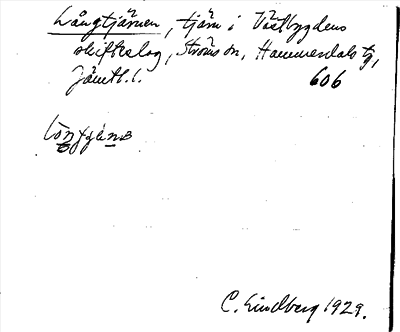 Långtjärnen, tjärn i Västbygdens
skifteslag, Ströms sn, Hammerdals tg,
Jämtl. l. 606
C. Lindberg 1929.